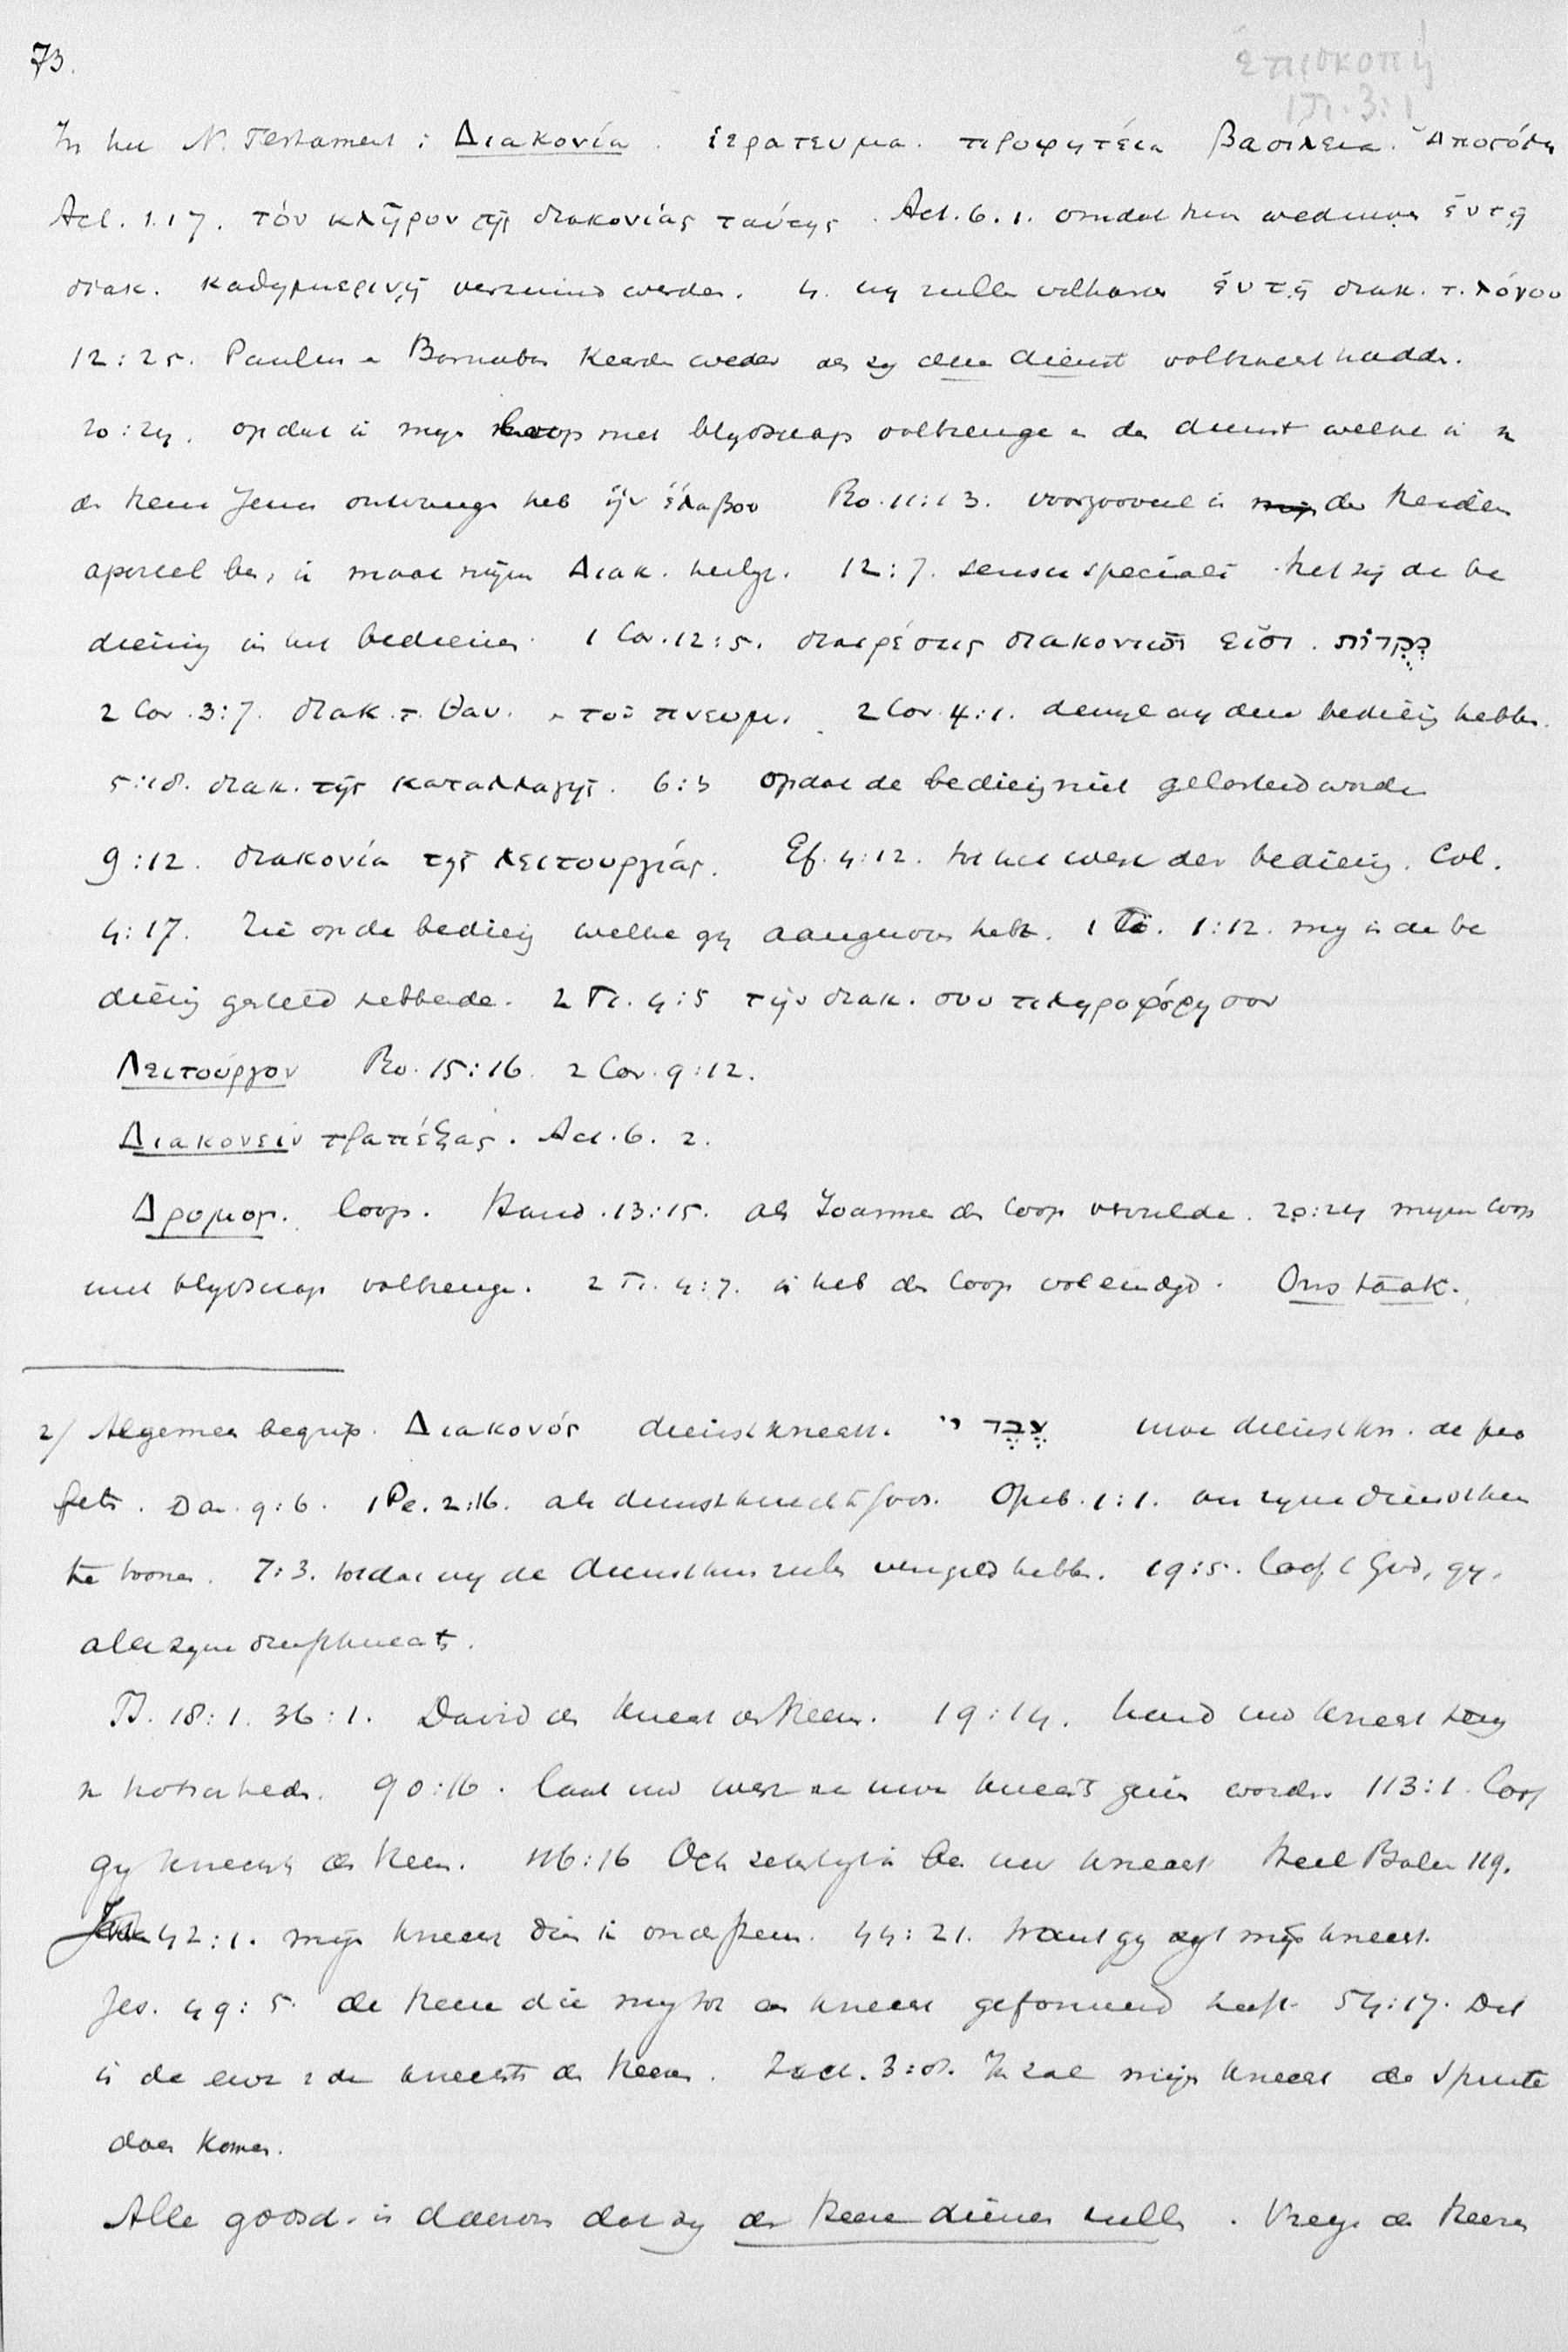 73.
ἐπισκοπή
1 Ti. 3:1
In het N. Testament: Διακονία. ἱερατευμα. προφητεία βασιλεια. Ἀποστόλη
Act. 1.17. τὸν κλῆρον τῆς διακονίας ταύτης. Act. 6.1. omdat hun weduwen ἐν τῇ
διακ. καθημερινῇ verzuimd werden. 4. wy zullen volharden ἐν τῇ διακ. τ. λόγου
12:25. Paulus en Barnabas keerden weder als zy deze dienst volbracht hadden.
20:24. opdat ik mijn loop met blydschap volbrenge en den dienst welke ik v.
den Heere Jezus ontvangen heb ἣν ἔλαβον Ro. 11:13. voorzooveel ik der heidenen
apostel ben, ik maak mijn διακ. heerlijk. 12:7. sensu speciali hetzij de be
diening in het bedienen. 1 Cor. 12:5. διαιρέσεις διακονιῶν εἰσι.
2 Cor. 3:7. διακ. τ. θαν. en τοῦ πνευμ. 2 Cor. 4:1. dewyl wy deze bediening hebben.
5:18. διακ. τῆς καταλλαγῆς. 6:3 opdat de bediening niet gelasterd worde
9:12. διακονία τῆς λειτουργίας. Ef. 4:12. tot het werk der bediening. Col.
4:17. Zie op de bediening welke gy aangenomen hebt. 1 Ti. 1:12. my in de be
diening gesteld hebbende. 2 Ti. 4:5 τὴν διακ. σου πληροφόρησον
Λειτούργον Ro. 15:16. 2 Cor. 9:12.
Διακονεῖν τραπέζας. Act. 6. 2.
Δρομος. loop. Hand. 13:25. als Joannes den loop vervulde. 20:24 mijnen loop
met blydschap volbrenge. 2 Ti. 4:7. ik heb den loop voleindigd. Ons taak.
2/ Algemeen begrip. Διακονός dienstknecht. עֶבֶד יי uwe dienstkn. de pro
feten. Dan. 9:6. 1 Pe. 2:16. als dienstknechten Gods. Openb. 1:1. aan zijne dienstkn
te toonen. 7:3. totdat wy de dienstknn zullen verzegeld hebben. 19:5. Looft God, gy
al zyne dienstknechten.
Ps. 18:1. 36:1. David den knecht des Heeren. 19:14. houd uw knecht terug
v. trotschheden. 90:16. laat uw werk aan uwe knechts gezien worden. 113:1. Looft
gy knechten des Heeren. 116:16 Och zekerlyk ik ben uw knecht Heel Psalm 119.
42:1. mijn knecht dien ik ondersteun. 44:21. want gy zyt mijn knecht.
Jes. 49:5. de Heere die my tot een knecht geformeerd heeft. 54:17. Dit
is de erve v. de knechten des Heeren. Zach. 3:8. Ik zal mijn knecht de Spruite
doen komen.
Alle goed. is daarom dat zy den Heere dienen zullen. Vreeze des Heeren